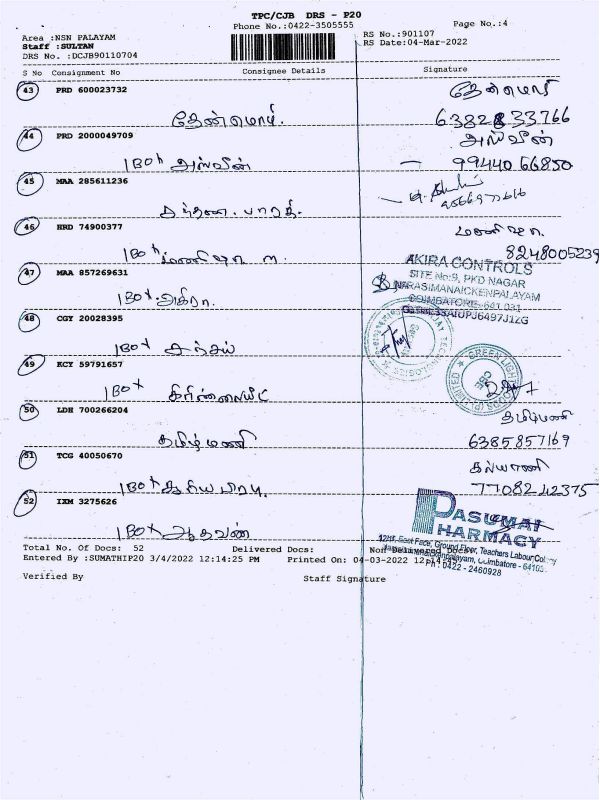 TPC/CJB DRS - P20
Phone No.:0422-3505555
Page No.:4
Area :NSN PALAYAM
RS No.:901107
Staff :SULTAN
RS Date:04-Mar-2022
DRS No. :DCJB90110704
S No Consignment No Consignee Details Signature
43 PRD 600023732
தேன்மொழி
தேன்மொழி. 6382833766
44 PRD 2000049709 அஸ்வின்
1 Box அஸ்வின் 9944066850
45 MAA 285611236
46 HRD 74900377
1 Box 8248005239
AKIRA CONTROLS
SITE No:9, PKD NAGAR
NARASIMANAICKENPALAYAM
COIMBATORE-641 031
47 MAA 857269631
1 Box அகிரா.
48 CGY 20028395
1 Box
49 KCY 59791657
GREEN LIGHT
1 Box கிரீன்லைட்
50 LDH 700266204 தமிழ்மணி
தமிழ்மணி 6385857169
51 TCG 40050670 கல்யாணி
1 Box 7708242375
52 IXM 3275626
1 Box ஆதவன்
PASUMAI
PHARMACY
East Face, Ground Floor, Teachers Labour Colony
Coimbatore - 641031
Ph : 0422 - 2460928
Total No. Of Docs: 52 Delivered Docs: Non Delivered Docs:
Entered By :SUMATHIP20 3/4/2022 12:14:25 PM Printed On: 04-03-2022
Verified By Staff Signature